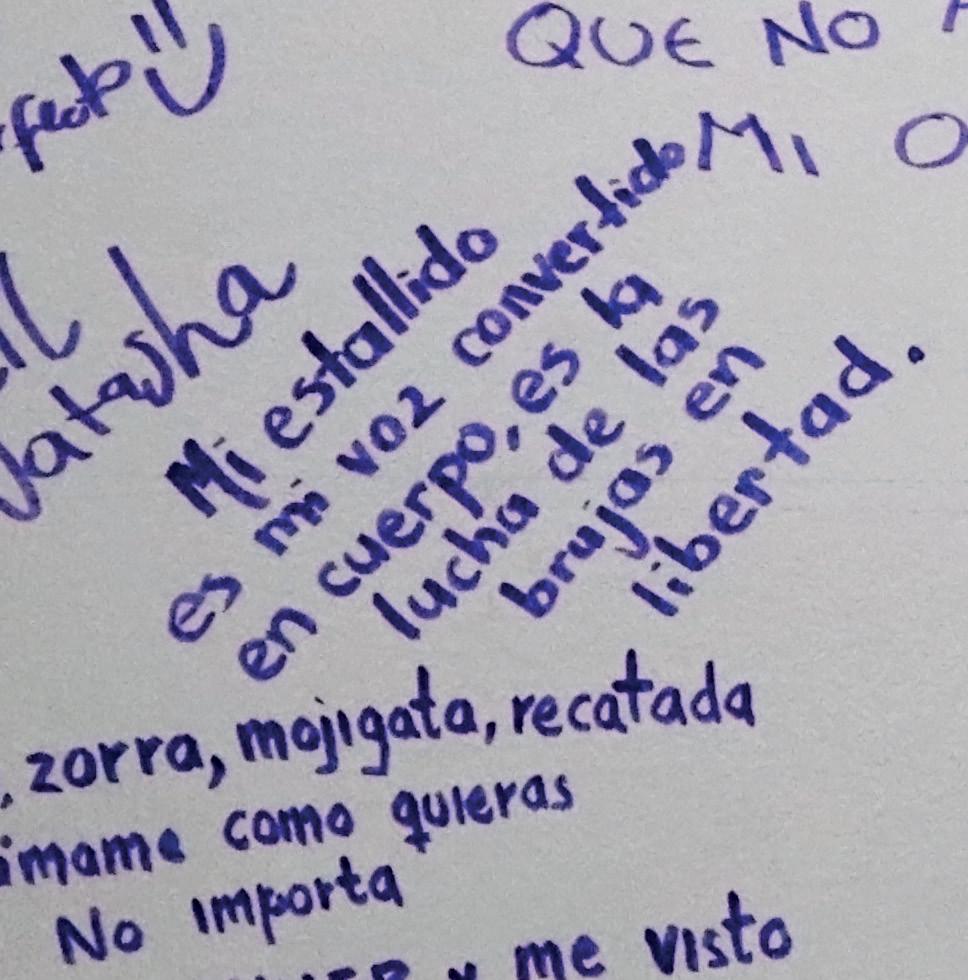 QUE NO
MI
Natasha
Mi estallido
es mi voz convertido
en cuerpo, es la
lucha de las
brujas en
libertad.
, zorra, mojigata, recatada
como quieras
No importa
y me visto